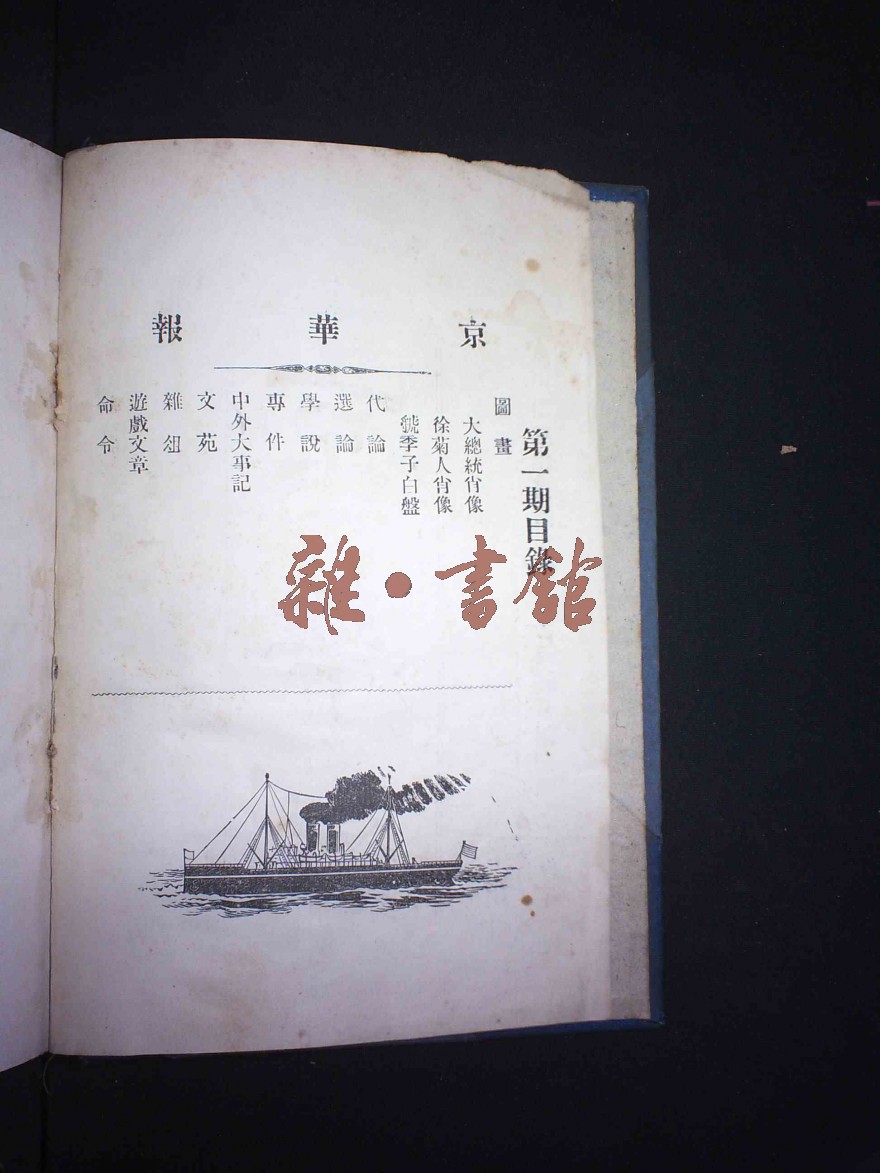 京華報
第一期目錄
圖畫
大總統肖像
徐菊人肖像
虢季子白盤
代論
選論
學說
專件
中外大事記
文苑
雜俎
遊戲文章
命令
雜•書館